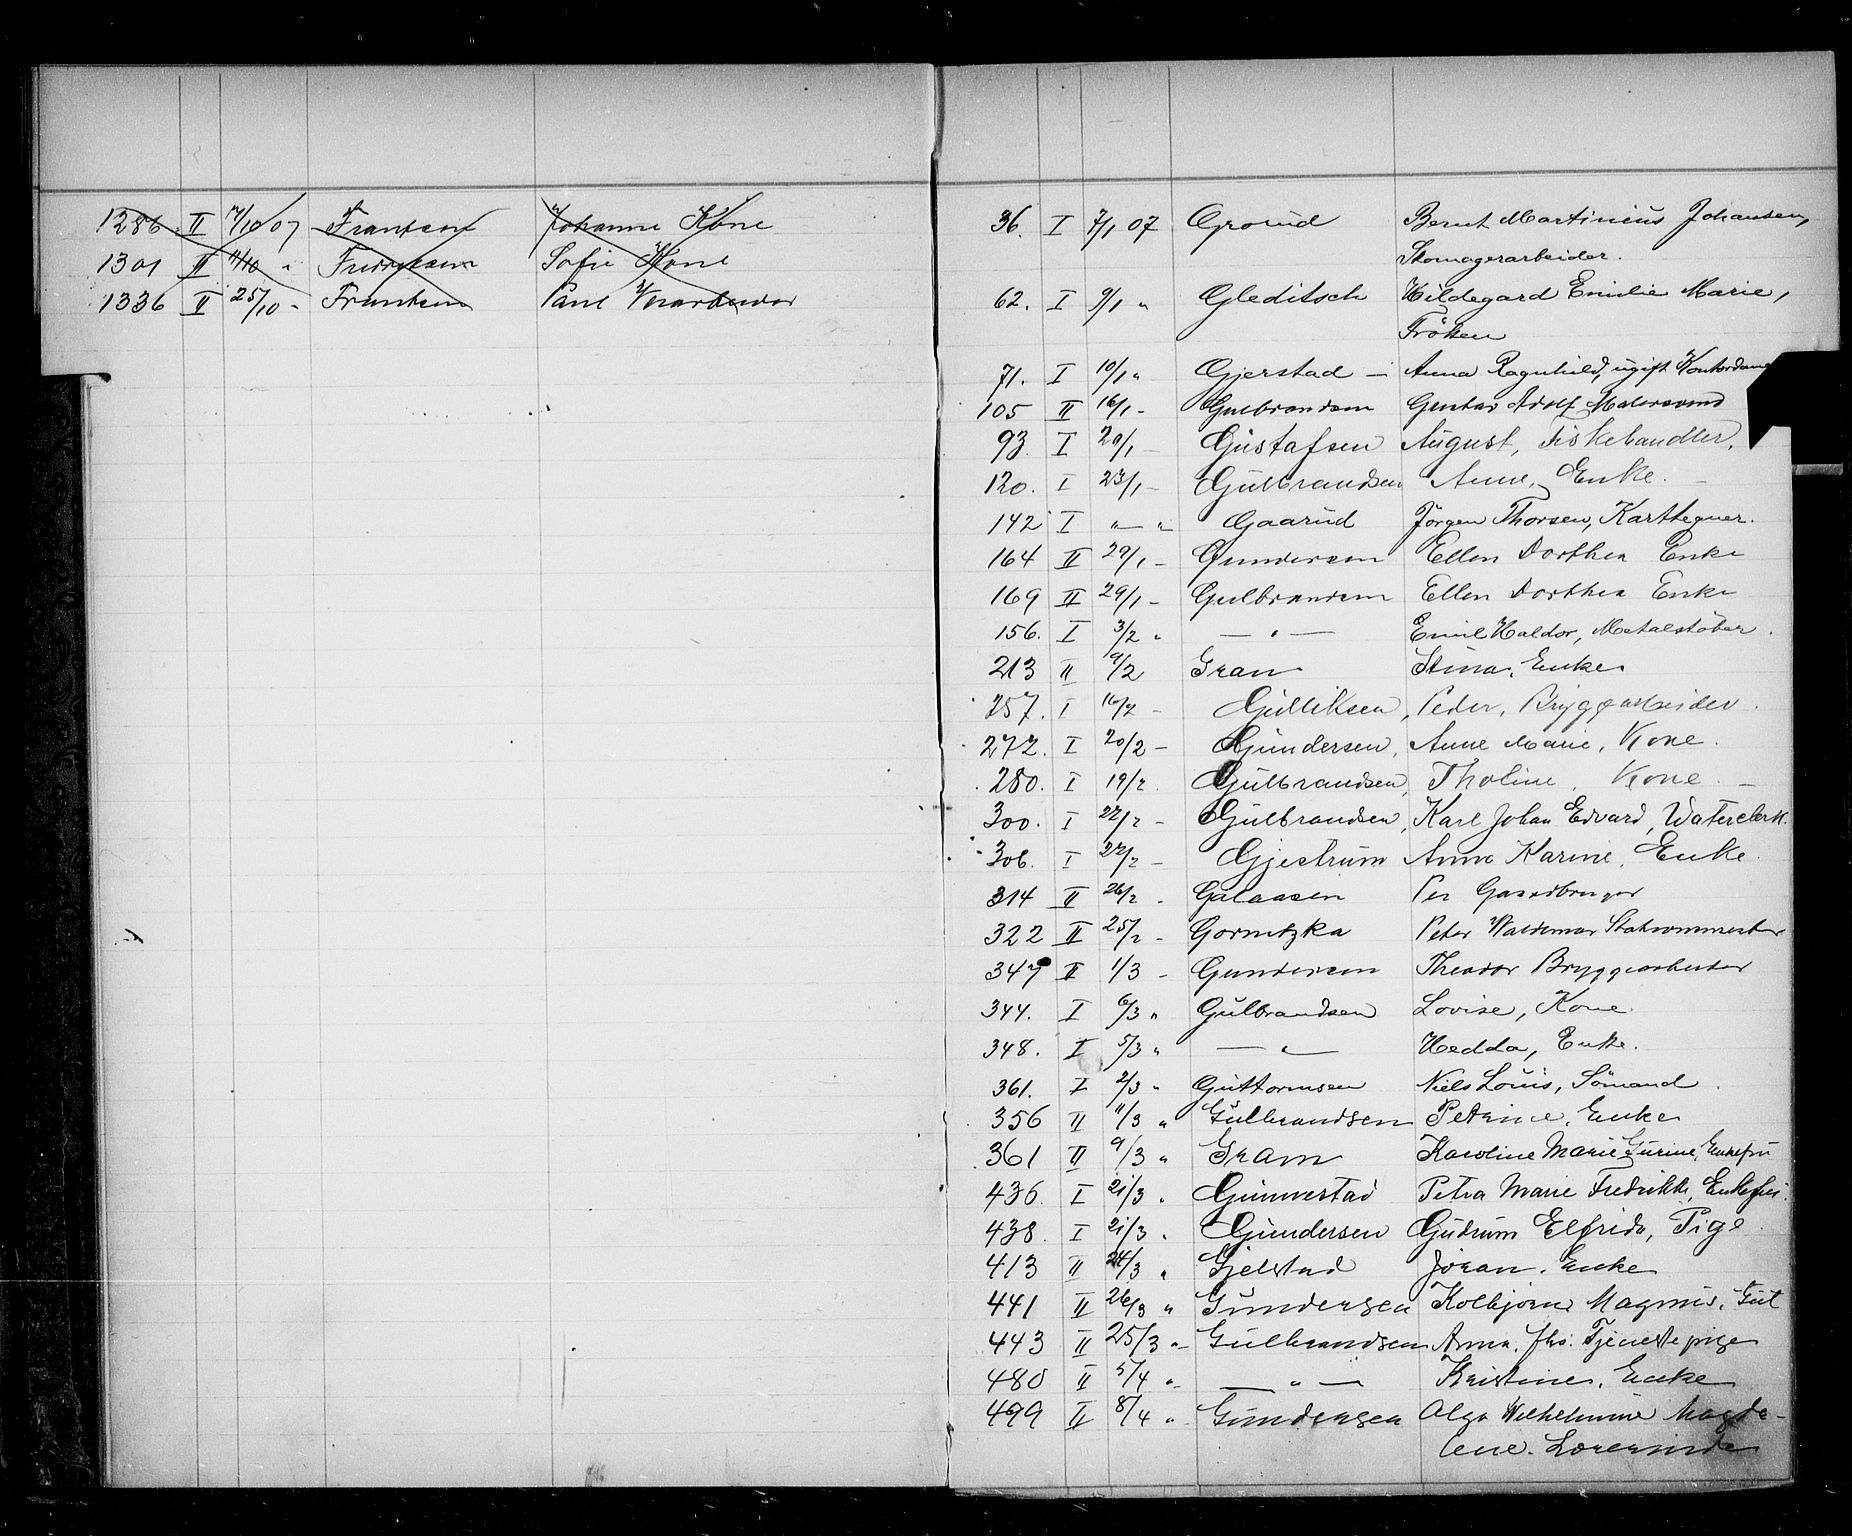 1286 II 7/10 07 Frantsen Johanne Kone
1301 II 11/10 " Fredriksen Sofie Kone
1336 II 25/10 - Frantsen Carl
36. I 7/1 07 Grorud Bernt Martinius Johansen,
Skomagerarbeider.
62. I 9/1 " Gleditsch Hildegard Emilie Marie,
Fröken
71. I 10/1 " Gjerstad — Anna Ragnhild, ugift Kontordame
105 II 16/1 - Gulbrandsen Gustav Adolf Malersvend
93. I 20/1 - Gustafsen August, Fiskehandler.
120. I 23/1 - Gulbrandsen Anne, Enke. -
142 I " — " Gaarud Jörgen Thorsen, Karttegner.
164 II 29/1 - Gundersen Ellen Dorthea Enke
169 II 29/1 - Gulbrandsen Ellen Dorthea Enke
156. I 3/2 " — " — Emil Haldor, Metalstöber.
213 II 9/2 Gran Stina, Enke
257. I 16/2 - Gulliksen, Peder, Bryggearbeider.
272. I 20/2 - Gundersen, Anne Marie, Kone.
280. I 19/2 Gulbrandsen, Tholine, Kone -
300. I 22/2 - Gulbrandsen, Karl Johan Edvard, Waterclerk.
306. I 22/2 - Gjestrum Anne Karine, Enke.
314 II 26/2 - Galaasen Per Gaardbruger
322 II 25/2 - Gornitzka Peter Waldemar
347 II 1/3 - Gundersen Theodor Bryggearbeider
344. I 6/3 " Gulbrandsen Lovise, Kone.
348. I 5/3 " — " — Hedda, Enke.
361. I 2/3 " Guttormsen Niels Louis, Sömand.
356 II 11/3 " Gulbrandsen Petrine, Enke
361 II 9/3 " Gram Karoline Marie Gurine, Enkefru
436. I 21/3 " Gunnestad Petra Marie Fredrikke, Enkefru.
438. I 21/3 " Gundersen Gudrum Elfrida, Pige.
413 II 24/3 " Gjelstad Jöran. Enke
441 II 26/3 " Gundersen Kolbjörn Magnus. Gut
443 II 25/3 " Gulbrandsen Anna. fhv. Tjenestepige
480 II 5/4 " — " — Kristine, Enke
499 II 8/4 " Gundersen Olga Wilhelmine Magda-
lene. Lærerinde